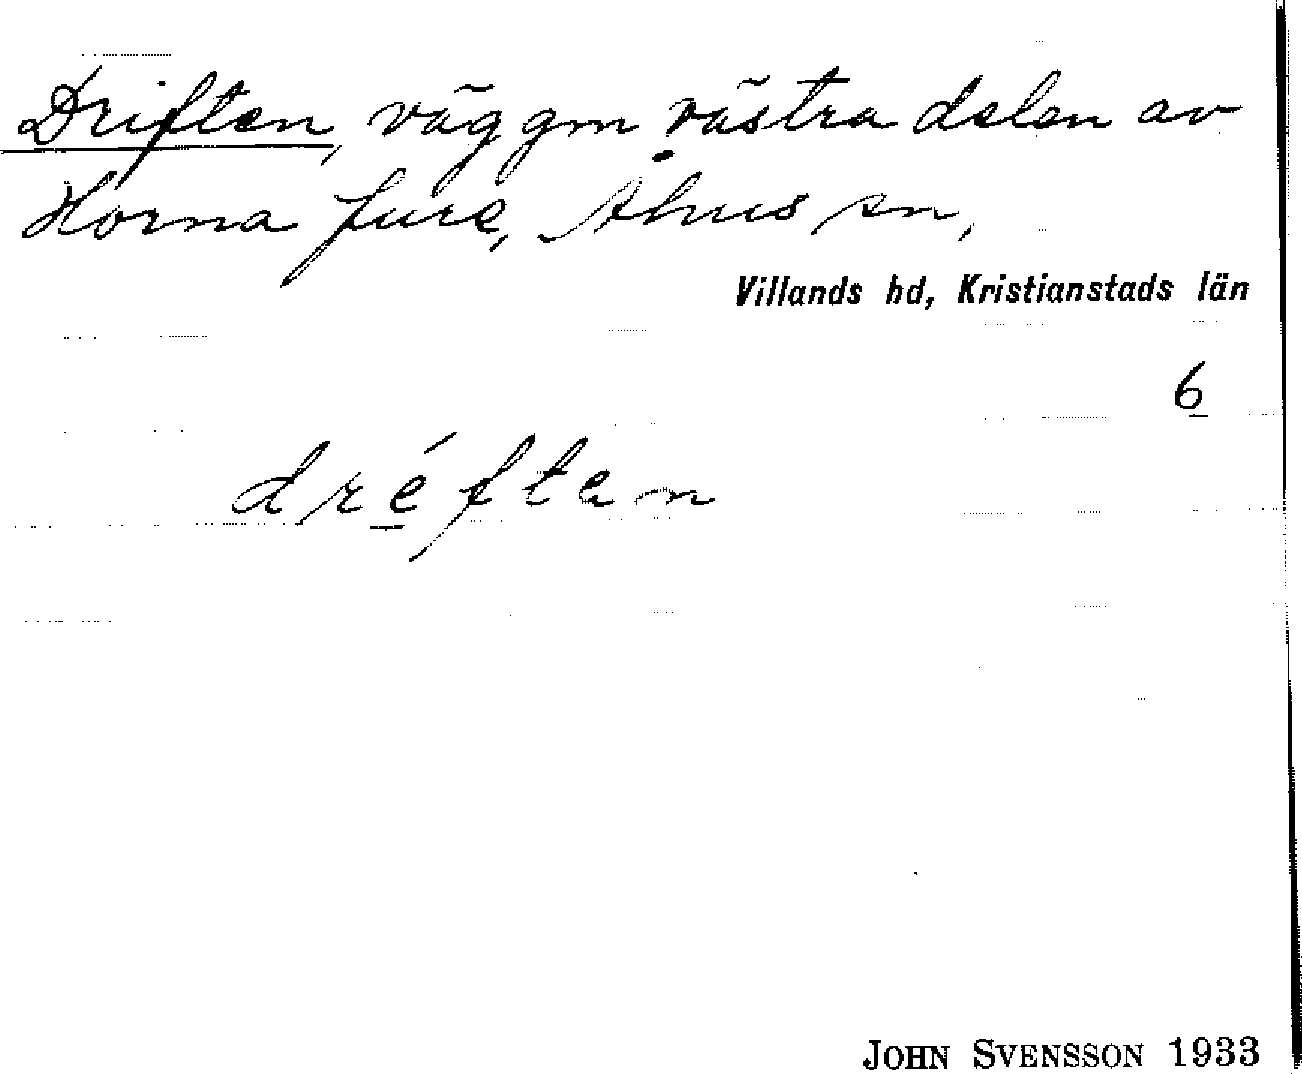 Driften, väg gm västra delen av
Horna fure, Åhus sn,
Villands hd, Kristianstads län
6
dréften
JOHN SVENSSON 1933